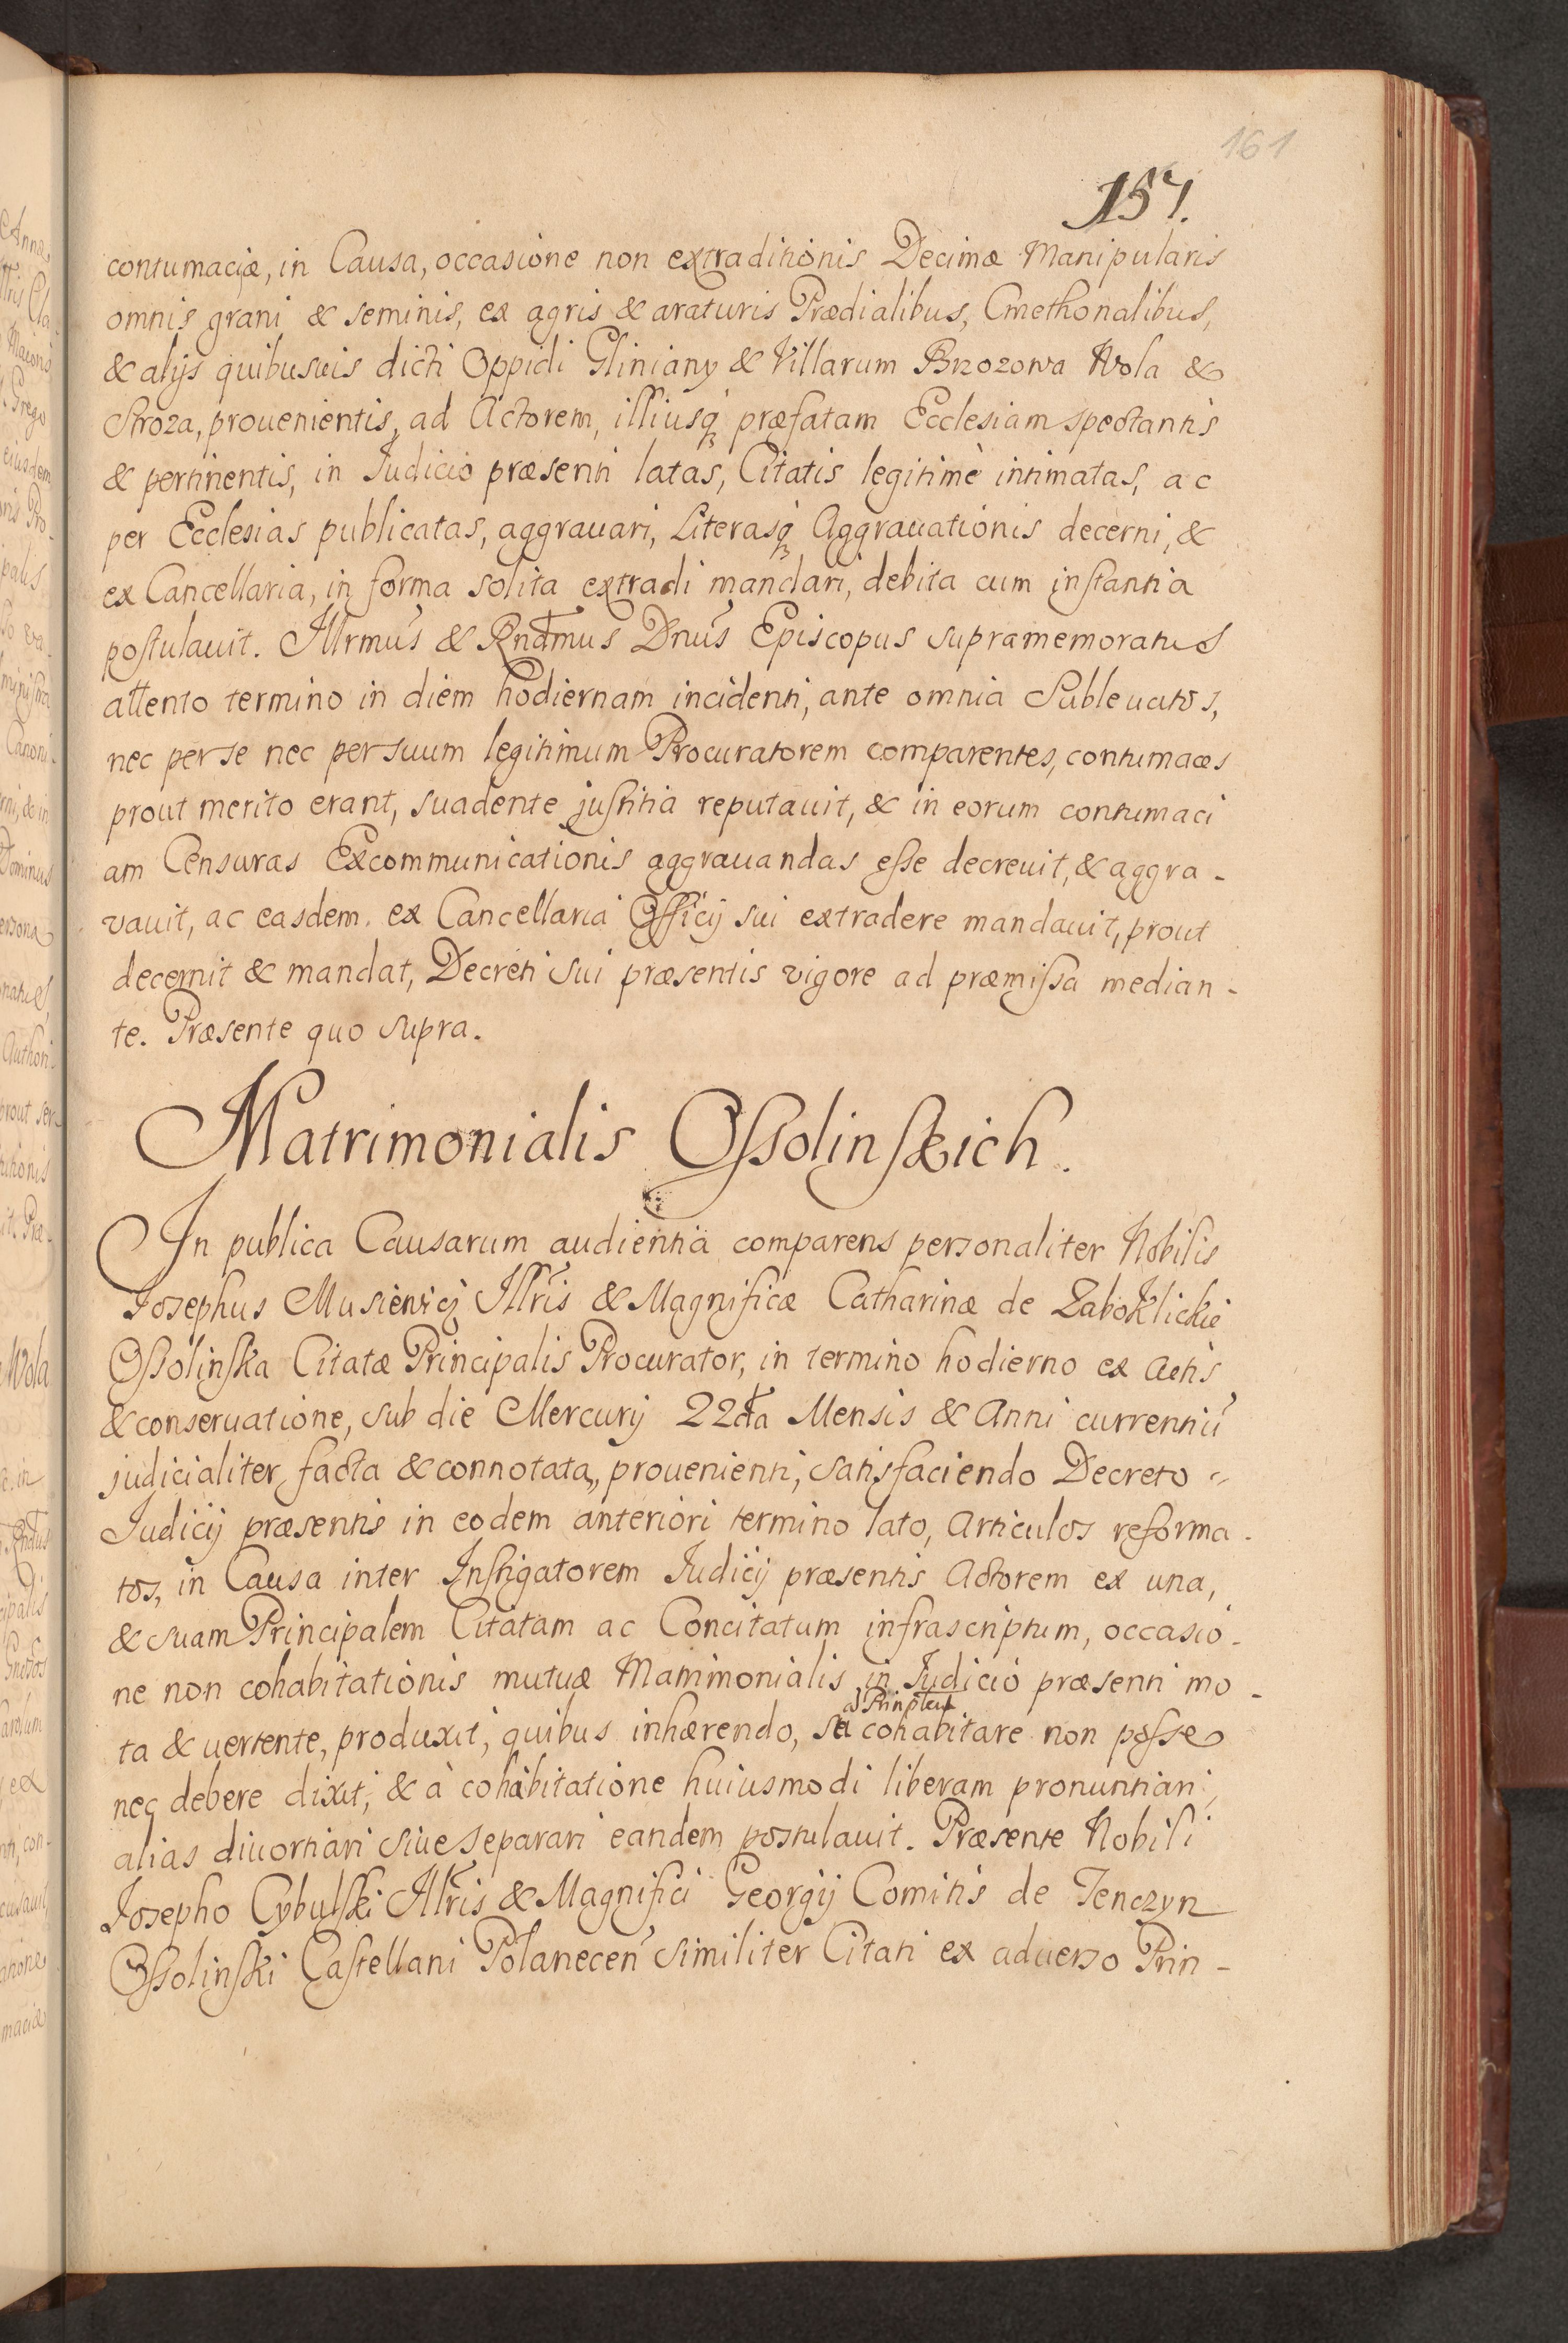 161
157.
contumaciæ, in Causa, occasione non extraditionis Decimæ Manipularis
omnis grani & seminis, ex agris & araturis Prædialibus, Cmethonalibus,
& alijs quibusvis dicti Oppidi Gliniany & Villarum Brzozowa Wola &
Stroza, prouenientis, ad Actorem, illiusq præfatam Ecclesiam spectantis
& pertinentis, in Iudicio præsenti latas, Citatis legitimè intimatas, ac
per Ecclesias publicatas, aggrauari, Literasq Aggrauationis decerni, &
ex Cancellaria, in forma solita extradi mandari, debita cum instantia
postulauit. Illrmus & Rndmus Dnus Episcopus supramemoratus
attento termino in diem hodiernam incidenti, ante omnia Subleuatos,
nec per se nec per suum legitimum Procuratorem comparentes, contumaces
prout merito erant, suadente justitia reputauit, & in eorum contumaci
am Censuras Excommunicationis aggrauandas esse decreuit, & aggra-
vauit, ac easdem ex Cancellaria Officij sui extradere mandauit, prout
decernit & mandat, Decreti sui præsentis vigore ad præmissa median-
te. Præsente quo supra.
Matrimonialis Ossolinskich.
In publica Causarum audientia comparens personaliter Nobilis
Josephus Musiewicz Illris & Magnificæ Catharinæ de Zaboklickie
Ossolinska Citatæ Principalis Procurator, in termino hodierno ex Actis
& conseruatione, sub die Mercurij 22da Mensis & Anni currentiu
judicialiter facta & connotata, prouenienti, satisfaciendo Decreto
Iudicij præsentis in eodem anteriori termino lato, Articulos reforma-
tos, in Causa inter Instigatorem Iudicij præsentis Actorem ex una,
& suam Principalem Citatam ac Concitatum infrascriptum, occasio-
ne non cohabitationis mutuæ Matrimonialis, in Iudicio præsenti mo-
ta & uertente, produxit, quibus inhærendo, sua cohabitare non posse
neq debere dixit, & à cohabitatione huiusmodi liberam pronuntiari,
alias diuortiari siue separari eandem postulauit. Præsente Nobili
Josepho Cybulski Illris & Magnifici Georgij Comitis de Tenczyn
Ossolinski Castellani Polanecen similiter Citati ex aduerso Prin-